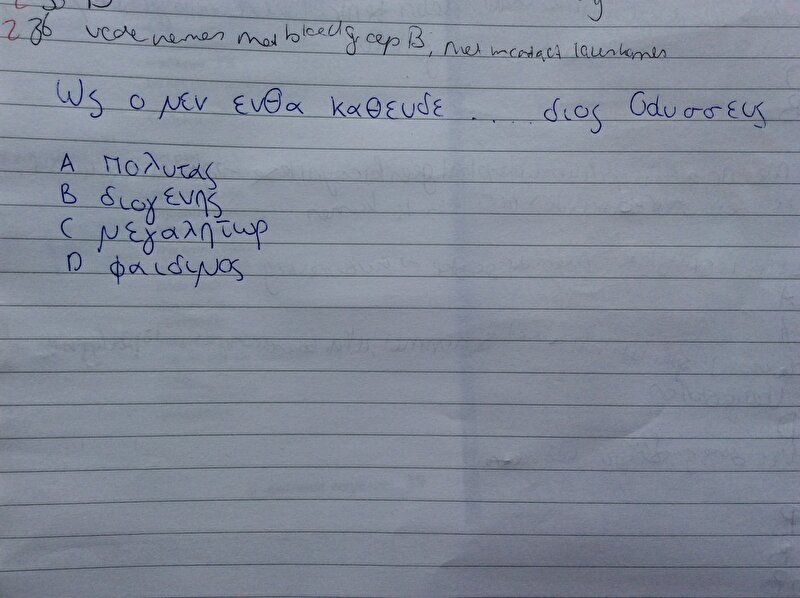 236 vcde nemen met bloedgroep B, niet in contact
Ως ο μεν ενθα καθευδε ..... διος Οδυσσευς
A πολυτας
B διογενης
C μεγαλητωρ
D φαιδιμος